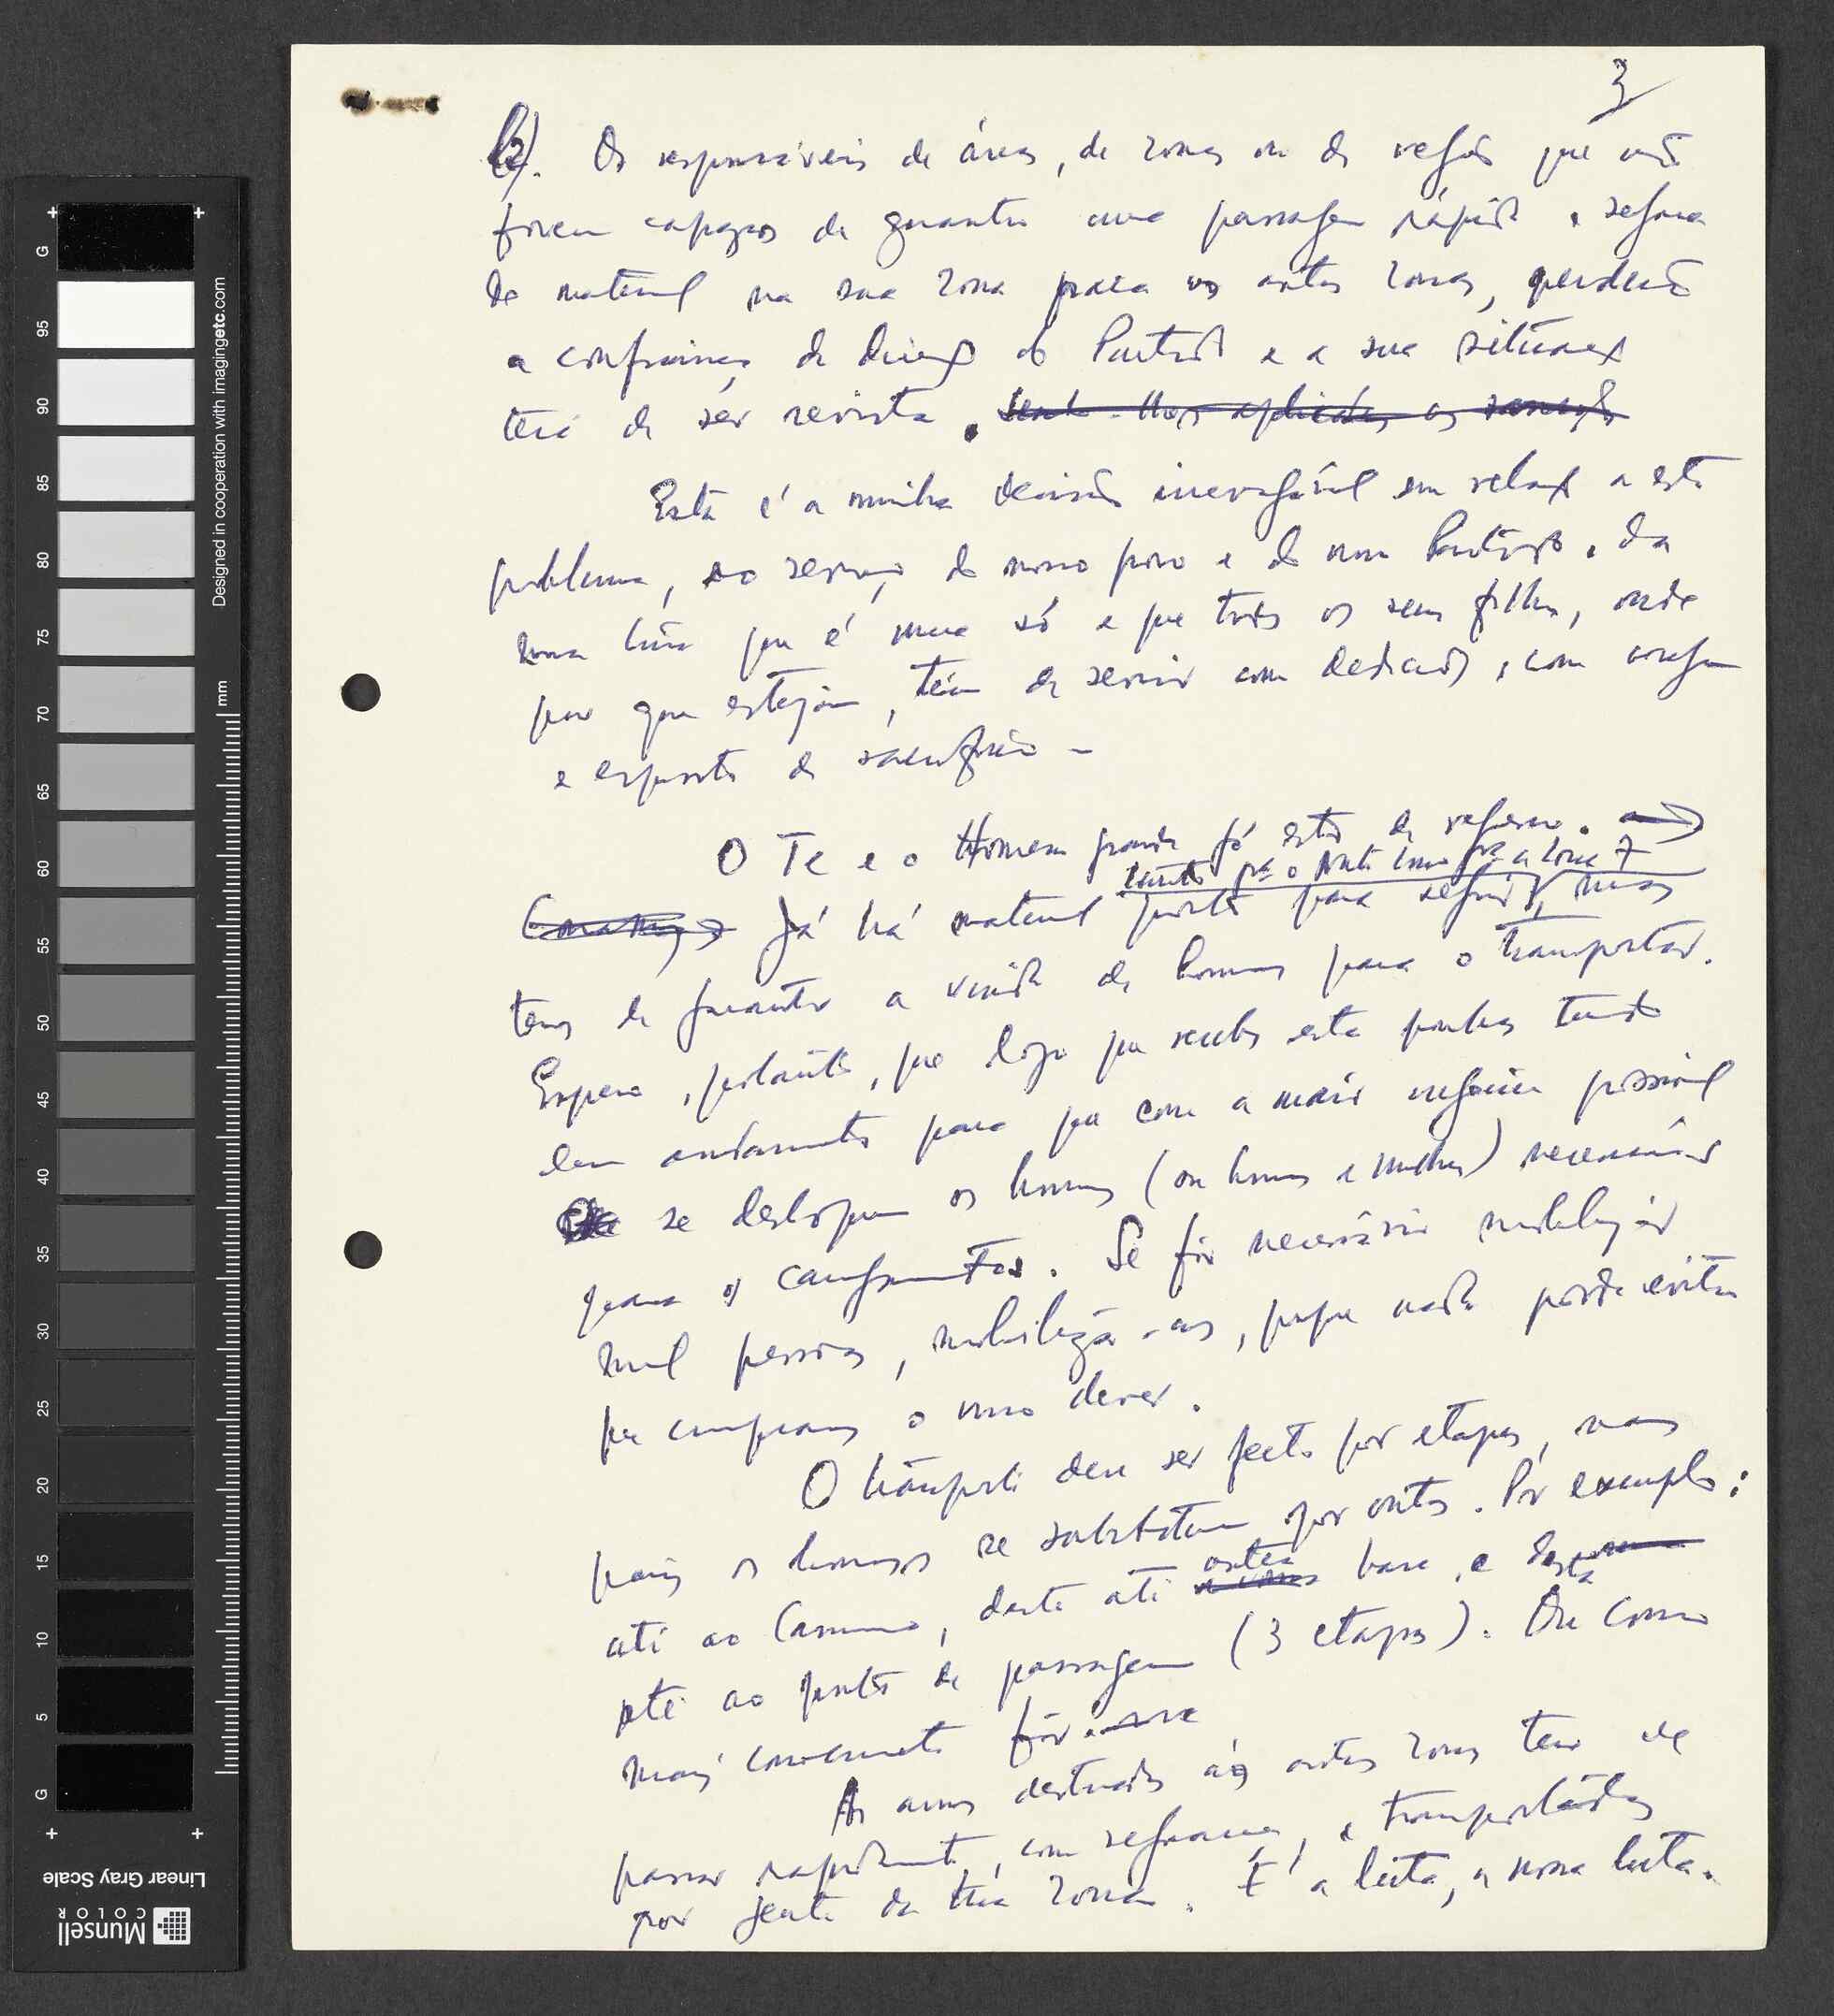 3
b). Os responsáveis de áreas, de zonas ou de região que não
forem capazes de garantir uma passagem rápida e segura
de material na sua zona para as outras zonas, perderão
a confiança da direcção do Partido e a sua situação
terá de ser revista.
Esta é a minha decisão irrevogável em relação a este
problema, ao serviço do nosso povo e do nosso Partido, da
nossa luta que é uma só e que todos os seus filhos, onde
quer que estejam, têm de servir com dedicação, com coragem
e espírito de sacrifício -
O Te e o Homem grande já estão de regresso.
tanto pa o Norte como pa a zona 7
Já há material pronto para seguir, mas
tens de garantir a vinda de homens para o transportar.
Espero, portanto, que logo que recebas esta ponhas tudo
em andamento para que com a maior urgência possível
se desloquem os homens (ou homens e mulheres) necessários
para os carregamentos. Se fôr necessário mobilizar
mil pessoas, mobilizá-as, porque nada pode evitar
que cumpramos o nosso dever.
O transporte deve ser feito por etapas, mas
os homens se substituem por outros. Por exemplo:
até ao Camuno, deste até outra base, e desta
até ao ponto de passagem (3 etapas). Ou como
mais conveniente fôr.
As armas destinadas às outras zonas tem de
passar rapidamente, com segurança, e transportadas
por gente da tua zona. É a luta, a nossa luta.
G
95
90
85
80
75
70
65
60
55
50
45
40
35
30
25
20
15
10
5
G
mm
Designed in cooperation with imagingetc.com
Linear Gray Scale
Munsell
COLOR